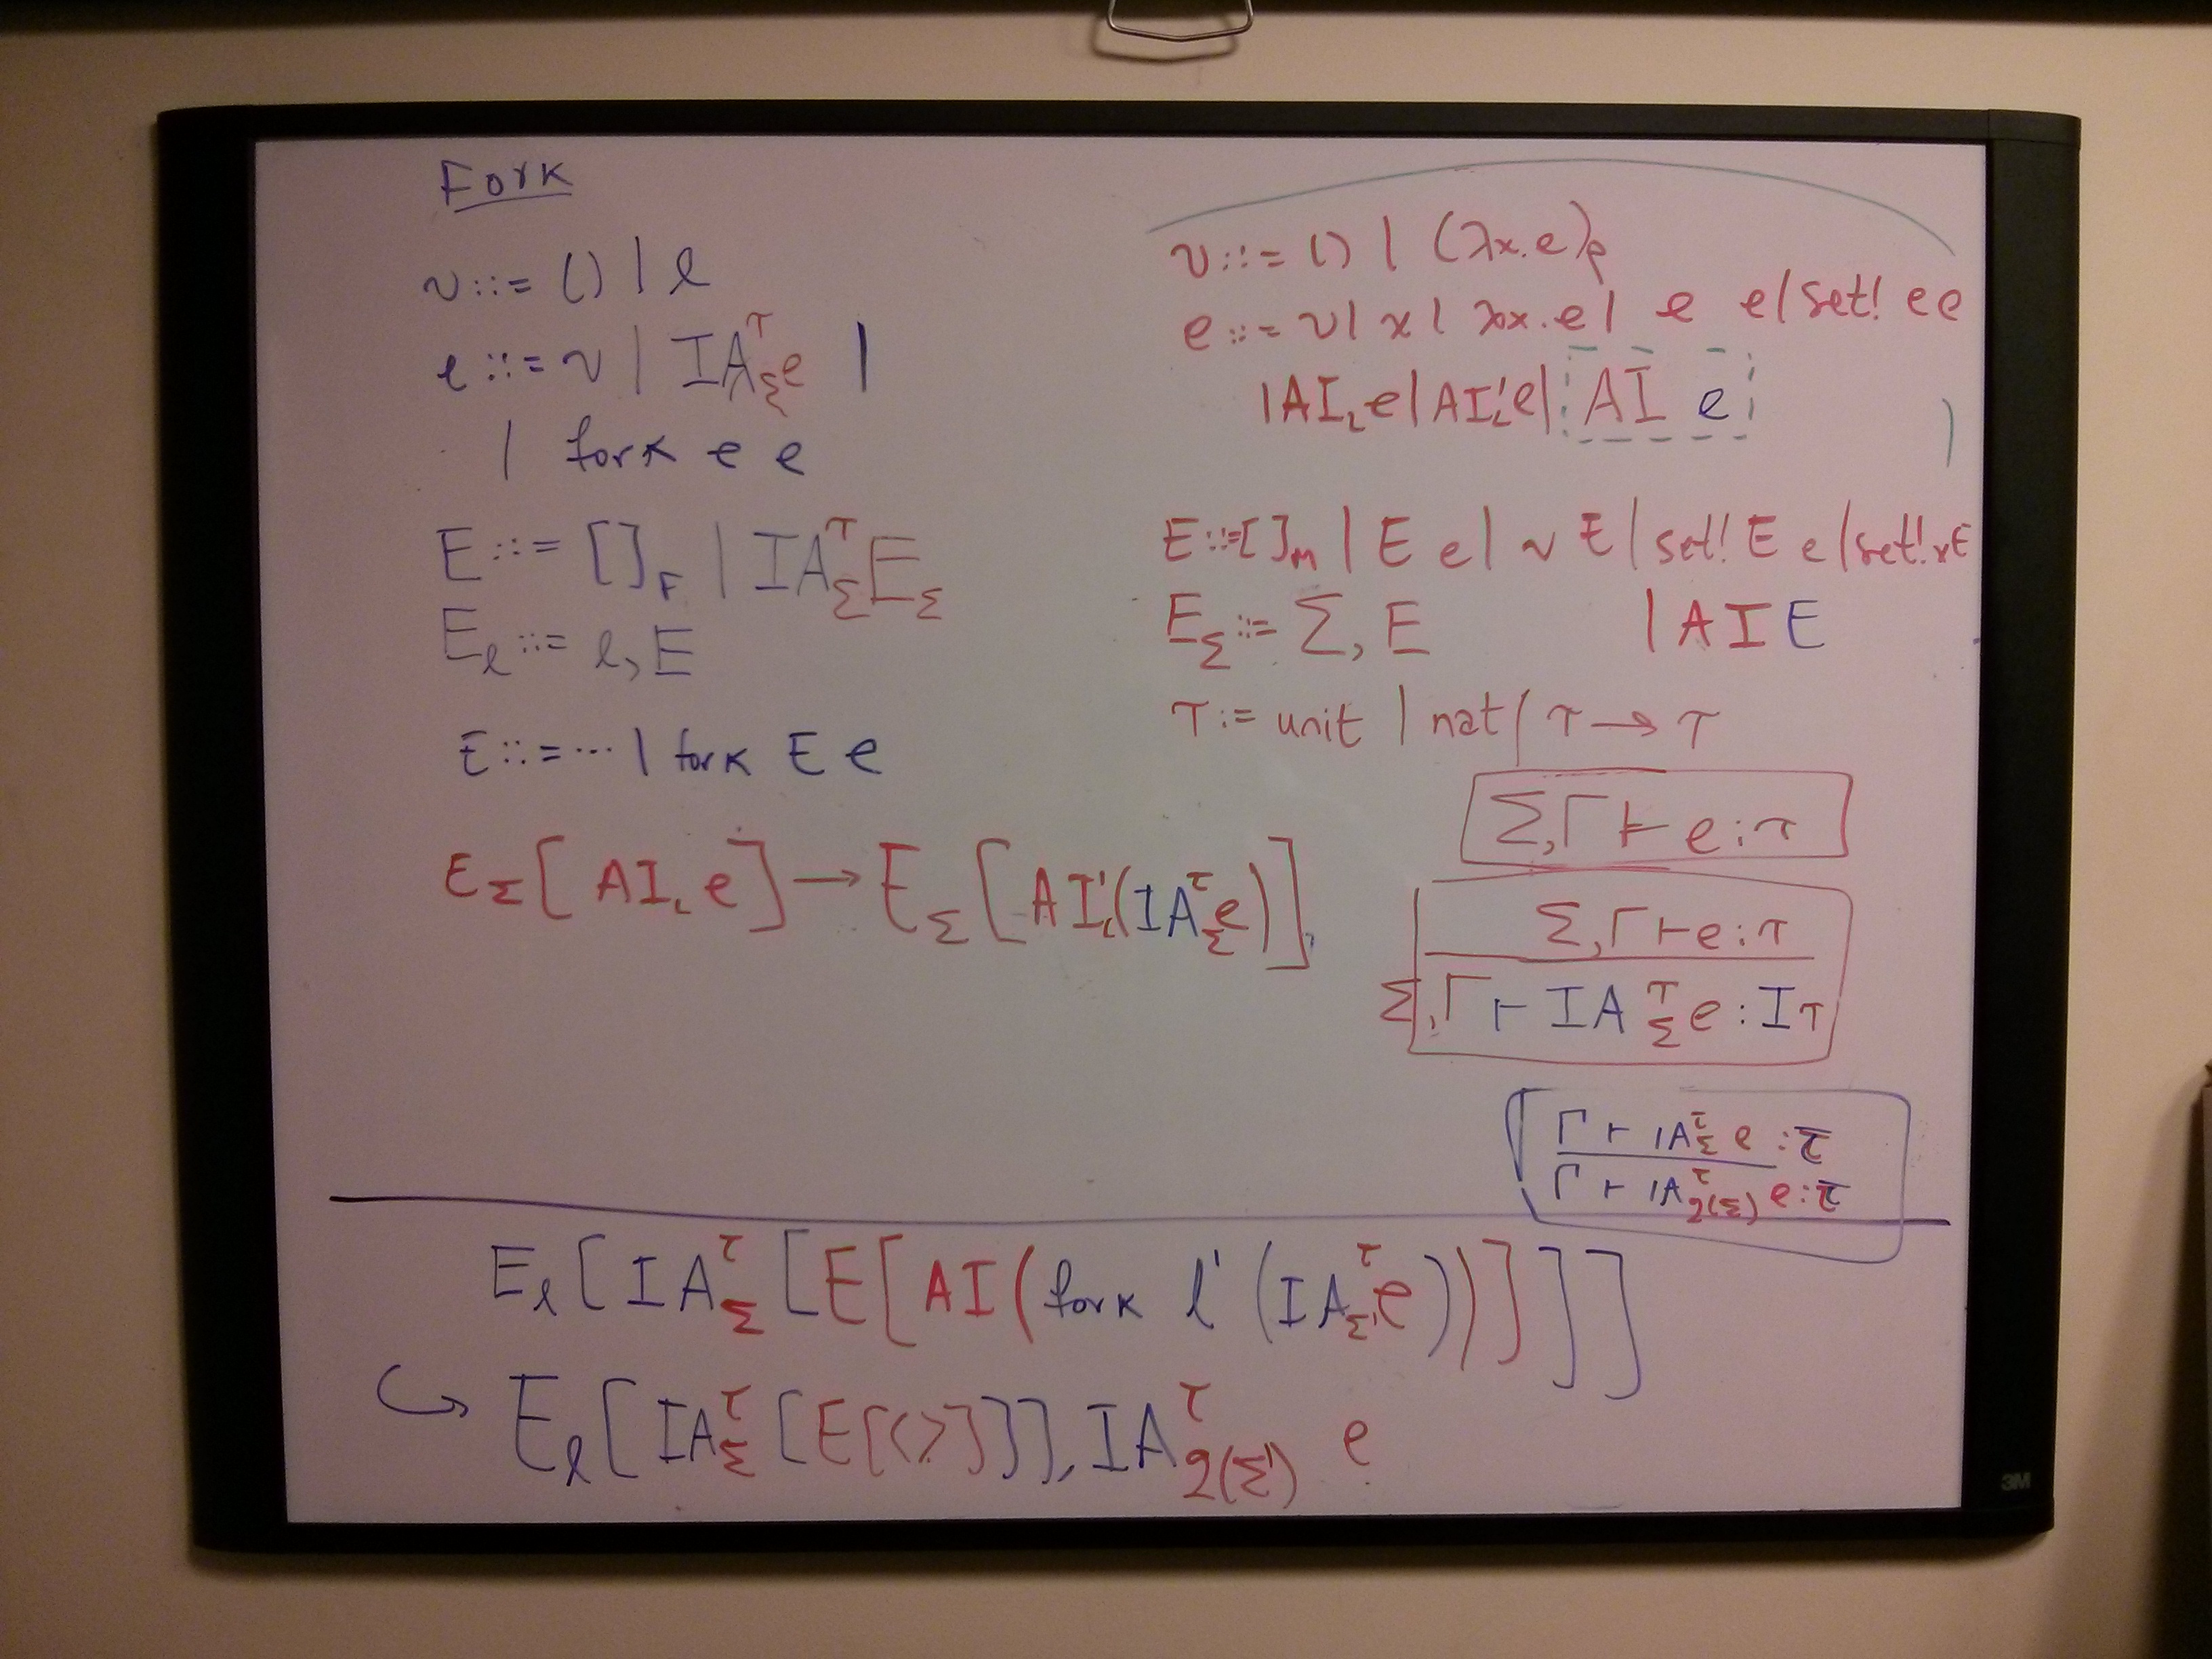 Fork
v ::= () | l
e ::= v | IA^τ_Σ e |
| fork e e
E ::= []_F | IA^τ_Σ E_Σ
E_l ::= l, E
E ::= ... | fork E e
E_Σ [ AI_L e ] → E_Σ [ AI'_L (IA^τ_Σ e) ]
v ::= () | (λx.e)_ρ
e ::= v | x | λx.e | e e | set! e e
| AI_L e | AI'_L e | AI e
E ::= []_m | E e | v E | set! E e | set! v E
E_Σ ::= Σ, E | AI E
τ := unit | nat | τ → τ
Σ,Γ ⊢ e : τ
Σ,Γ ⊢ e : τ
Σ,Γ ⊢ IA^τ_Σ e : Iτ
Γ ⊢ IA^τ_Σ e : τ̅
Γ ⊢ IA^τ_2(Σ) e : τ̅
E_l [ IA^τ_Σ [ E [ AI ( fork l' ( IA^τ_Σ' e ) ) ] ] ]
↪ E_l [ IA^τ_Σ [ E [<>] ] ], IA^τ_2(Σ') e
3M